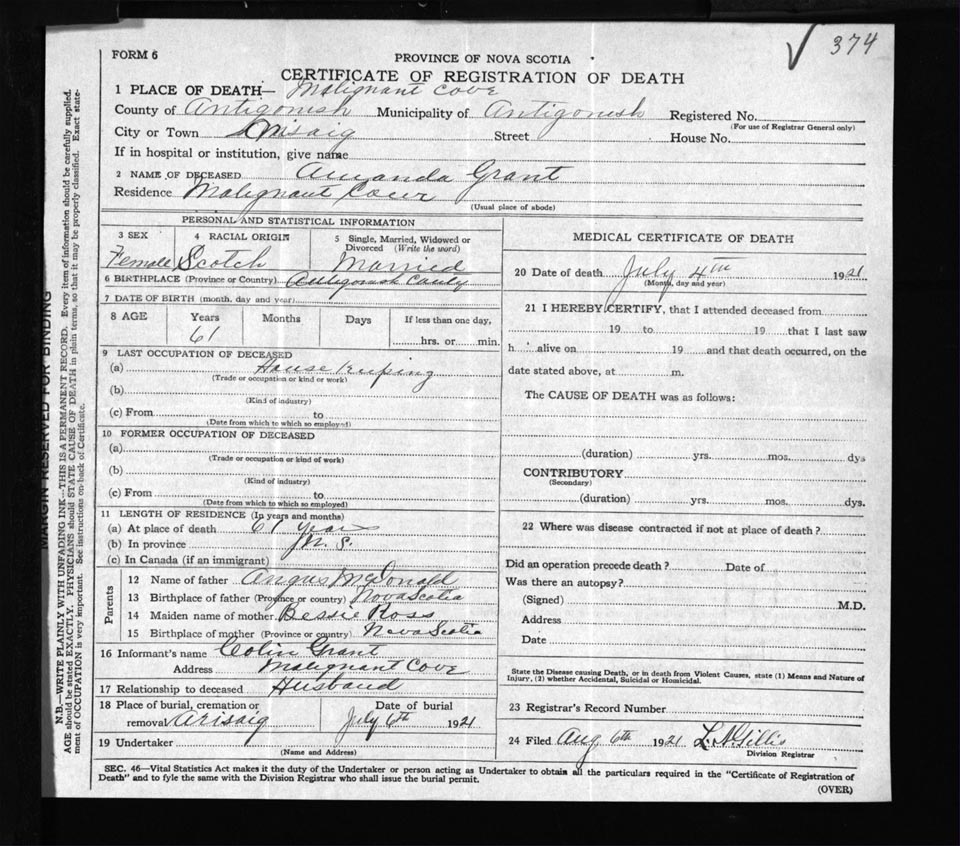 374
FORM 6
PROVINCE OF NOVA SCOTIA
CERTIFICATE OF REGISTRATION OF DEATH
1 PLACE OF DEATH— Malignant Cove
County of Antigonish Municipality of Antigonish Registered No.
(For use of Registrar General only)
City or Town Arisaig Street House No.
If in hospital or institution, give name
2 NAME OF DECEASED Amanda Grant
Residence Malignant Cove
(Usual place of abode)
PERSONAL AND STATISTICAL INFORMATION
3 SEX 4 RACIAL ORIGIN 5 Single, Married, Widowed or Divorced (Write the word)
Female Scotch Married
6 BIRTHPLACE (Province or Country) Antigonish County
7 DATE OF BIRTH (month, day and year)
8 AGE Years Months Days If less than one day,
61 hrs. or min.
9 LAST OCCUPATION OF DECEASED
(a) House Kuping
(Trade or occupation or kind or work)
(b)
(Kind of industry)
(c) From to
(Date from which to which so employed)
10 FORMER OCCUPATION OF DECEASED
(a)
(Trade or occupation or kind of work)
(b)
(Kind of industry)
(c) From to
(Date from which to which so employed)
11 LENGTH OF RESIDENCE (In years and months)
(a) At place of death 61 years
(b) In province N.S.
(c) In Canada (if an immigrant)
Parents
12 Name of father Angus McDonald
13 Birthplace of father (Province or country) Nova Scotia
14 Maiden name of mother Bessie Ross
15 Birthplace of mother (Province or country) Nova Scotia
16 Informant's name Colin Grant
Address Malignant Cove
17 Relationship to deceased Husband
18 Place of burial, cremation or removal Arisaig Date of burial
July 6th 1921
19 Undertaker
(Name and Address)
MEDICAL CERTIFICATE OF DEATH
20 Date of death July 4th 1921
(Month, day and year)
21 I HEREBY CERTIFY, that I attended deceased from
19 to 19 that I last saw
h alive on 19 and that death occurred, on the
date stated above, at m.
The CAUSE OF DEATH was as follows:
(duration) yrs. mos. dys
CONTRIBUTORY
(Secondary)
(duration) yrs. mos. dys.
22 Where was disease contracted if not at place of death?
Did an operation precede death? Date of
Was there an autopsy?
(Signed) M.D.
Address
Date
State the Disease causing Death, or in death from Violent Causes, state (1) Means and Nature of
Injury, (2) whether Accidental, Suicidal or Homicidal.
23 Registrar's Record Number
24 Filed Aug 6th 1921 Gillis
Division Registrar
SEC. 46—Vital Statistics Act makes it the duty of the Undertaker or person acting as Undertaker to obtain all the particulars required in the "Certificate of Registration of
Death" and to fyle the same with the Division Registrar who shall issue the burial permit.
(OVER)
MARGIN RESERVED FOR BINDING
N.B.—WRITE PLAINLY WITH UNFADING INK—THIS IS A PERMANENT RECORD. Every item of information should be carefully supplied.
AGE should be stated EXACTLY. PHYSICIANS should STATE CAUSE OF DEATH in plain terms, so that it may be properly classified. Exact state-
ment of OCCUPATION is very important. See instructions on back of Certificate.